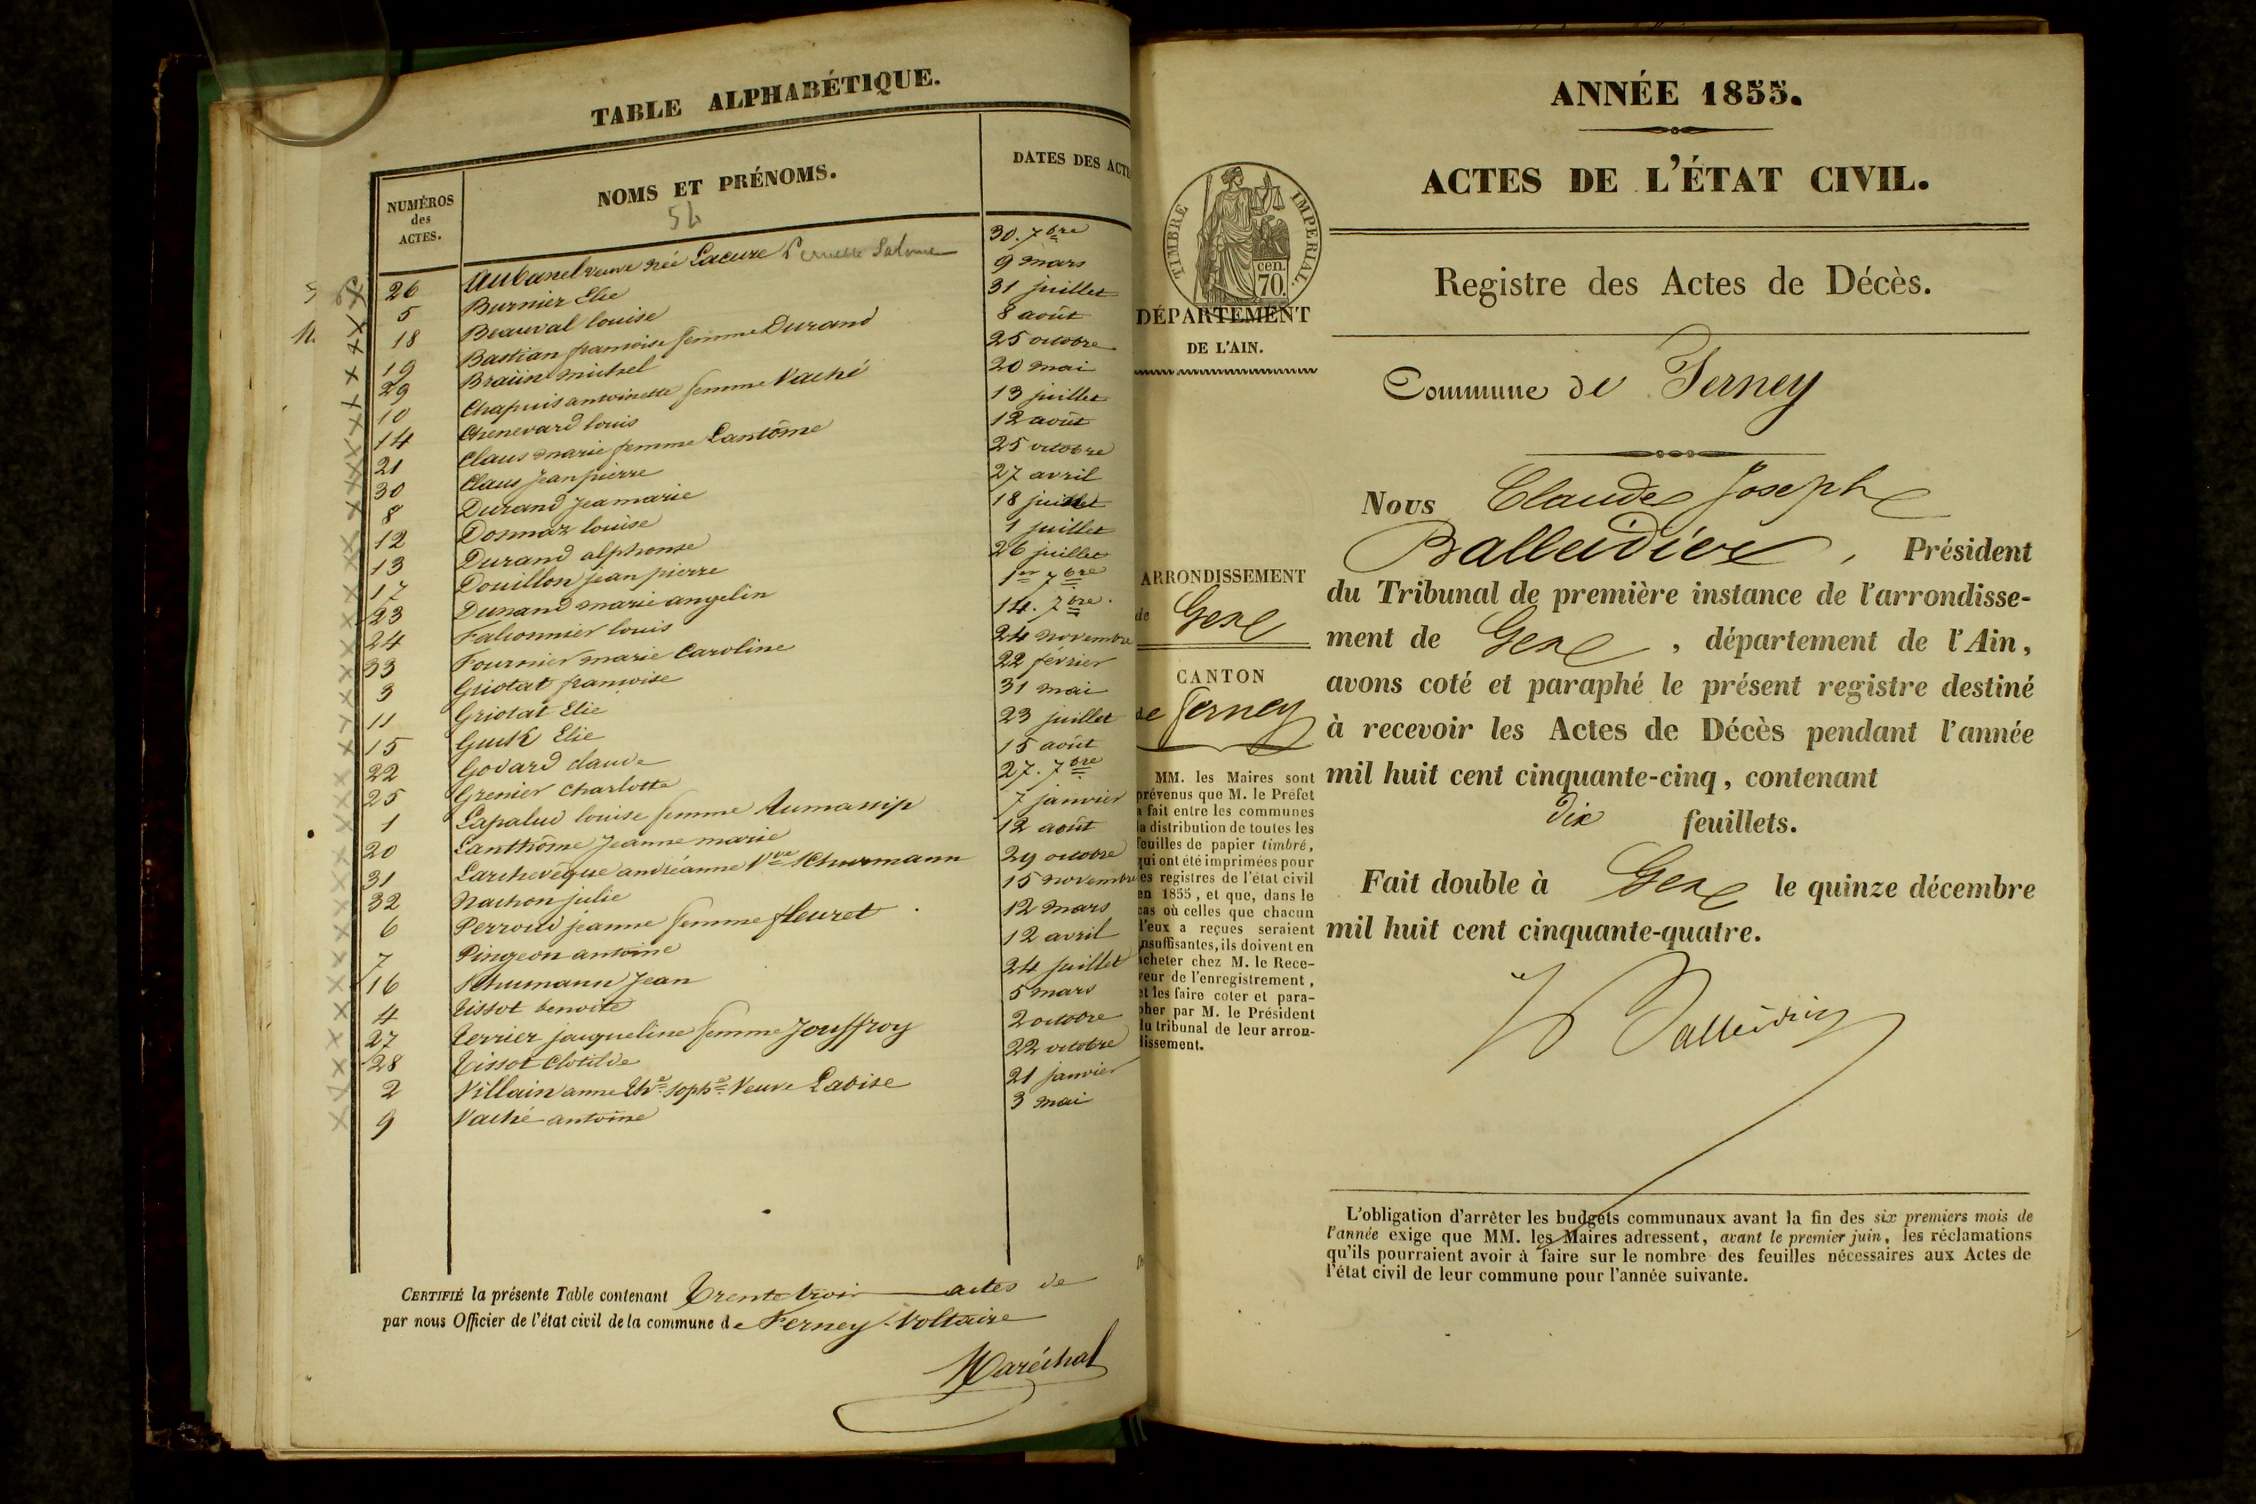 TABLE ALPHABÉTIQUE.
NUMÉROS des ACTES. NOMS ET PRÉNOMS. DATES DES ACTE
54
26 Aubanel veuve née Lacuze Pernette Salome 30. 7bre
5 Burnier Elie 9 mars
18 Beauval louise 31 juillet
19 Bastian francoise femme Durand 8 août
29 Braün michel 25 octobre
10 Chapuis antoinette femme Vaché 20 mai
14 Chenevard louis 13 juillet
21 Claus marie femme Lantôme 12 août
30 Claus Jean pierre 25 octobre
8 Durand Jea marie 27 avril
12 Donnaz louise 18 juillet
13 Durand alphonse 1 juillet
17 Douillon jean pierre 26 juillet
23 Dunand marie angelin 1er 7bre
24 Falconnier louis 14. 7bre
33 Fournier marie Caroline 24 novembre
3 Griotat francoise 22 février
11 Griotat Elie 31 mai
15 Elie 23 juillet
22 Godard claude 15 août
25 Grenier Charlotte 27. 7bre
1 Lapalud louise femme 7 janvier
20 Lanthôme Jeanne marie 12 août
31 Larchevêque andréanne Vve Schurmann 29 octobre
32 Nachon julie 15 novembre
6 Perroud jeanne femme fleuret 12 mars
7 Pingeon antoine 12 avril
16 Schumann Jean 24 juillet
4 Tissot benoite 5 mars
27 Terrier jacqueline femme Jouffroy 2 octobre
28 Tissot Clotilde 22 octobre
2 Villain anne Che Sophe Veuve Labise 21 janvier
9 Vaché antoine 3 mai
CERTIFIÉ la présente Table contenant Trente trois actes de
par nous Officier de l'état civil de la commune de Ferney-Voltaire
Maréchal
ANNÉE 1855.
ACTES DE L'ÉTAT CIVIL.
TIMBRE IMPERIAL.
70 cen.
DÉPARTEMENT
DE L'AIN.
Registre des Actes de Décès.
Commune de Ferney
Nous Claude Joseph
Balleidier, Président
du Tribunal de première instance de l'arrondisse-
ment de Gex, département de l'Ain,
avons coté et paraphé le présent registre destiné
à recevoir les Actes de Décès pendant l'année
mil huit cent cinquante-cinq, contenant
Dix feuillets.
Fait double à Gex le quinze décembre
mil huit cent cinquante-quatre.
Balleidier
ARRONDISSEMENT
de Gex
CANTON
de Ferney
MM. les Maires sont
prévenus que M. le Préfet
a fait entre les communes
la distribution de toutes les
feuilles de papier timbré,
qui ont été imprimées pour
les registres de l'état civil
en 1855, et que, dans le
cas où celles que chacun
d'eux a reçues seraient
insuffisantes, ils doivent en
acheter chez M. le Rece-
veur de l'enregistrement,
et les faire coter et para-
pher par M. le Président
du tribunal de leur arron-
dissement.
L'obligation d'arrêter les budgets communaux avant la fin des six premiers mois de
l'année exige que MM. les Maires adressent, avant le premier juin, les réclamations
qu'ils pourraient avoir à faire sur le nombre des feuilles nécessaires aux Actes de
l'état civil de leur commune pour l'année suivante.